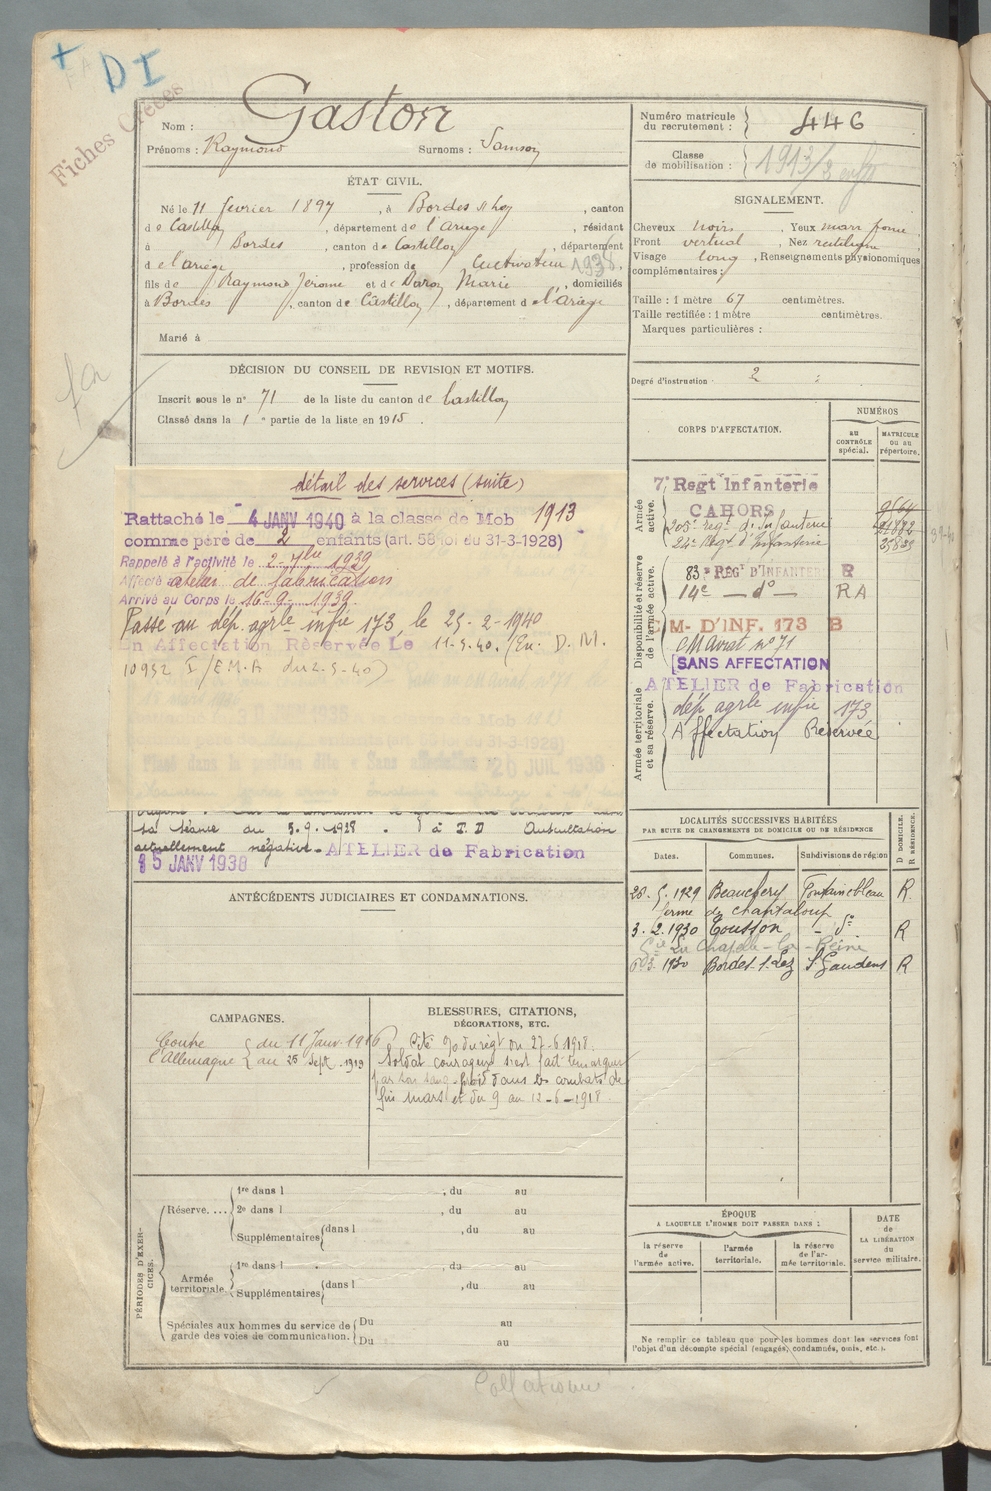 + DI
Fiches Créées
Nom : Gaston
Prénoms : Raymond Surnoms : Samson
Numéro matricule du recrutement : 446
Classe de mobilisation : 1913/2 enfts
ÉTAT CIVIL.
Né le 11 février 1897, à Bordes s/ Lez, canton
de Castillon, département de l'Ariège, résidant
à Bordes, canton de Castillon, département
de l'ariège, profession de Cultivateur 1938.
fils de Raymond Jérome et de Duron Marie, domiciliés
à Bordes, canton de Castillon, département de l'Ariège
Marié à
SIGNALEMENT.
Cheveux noirs, Yeux marr fonc
Front vertical, Nez rectiligne
Visage long, Renseignements physionomiques
complémentaires :
Taille : 1 mètre 67 centimètres.
Taille rectifiée : 1 mètre centimètres.
Marques particulières :
Degré d'instruction : 2
DÉCISION DU CONSEIL DE REVISION ET MOTIFS.
Inscrit sous le n° 71 de la liste du canton de Castillon
Classé dans la 1e partie de la liste en 1915.
fcn
détail des services (suite)
Rattaché le 4 JANV 1940 à la classe de Mob 1913
comme père de 2 enfants (art. 58 loi du 31-3-1928)
Rappelé à l'activité le 2 7bre 1939
Affecté atelier de fabrication
Arrivé au Corps le 16-9-1939.
Passé au dép. agrle infie 173, le 25-2-1940
En Affectation Réservée Le 11-5-40. (En. D. M.
10932 I/E.M.A du 2-5-40)
Rattaché
de Mob
enfants (art. 58 loi du 31-3-1928)
Placé dans la position dite « Sans affectation » 20 JUIL 1936
sa séance du 5.9.1928. à I.D Auscultation
actuellement négative. ATELIER de Fabrication
15 JANV 1938
CORPS D'AFFECTATION.
NUMÉROS
au CONTRÔLE spécial.
MATRICULE ou au répertoire.
Armée active.
7e Regt Infanterie
CAHORS 9664
205e rég. d'Infanterie 21882
24e Régt d'Infanterie 25823
39-40
Disponibilité et réserve de l'armée active.
83e RÉGt D'INFANTERIE R
14e — do — RA
C M- D'INF. 173 B
CMairat n° 71
SANS AFFECTATION
Armée territoriale et sa réserve.
ATELIER de Fabrication
dép. agrle infie 173
Affectation Réservée
LOCALITÉS SUCCESSIVES HABITÉES
PAR SUITE DE CHANGEMENTS DE DOMICILE OU DE RÉSIDENCE
Dates. Communes. Subdivisions de région D DOMICILE. R RÉSIDENCE.
26.5.1929 Beauchery Fontainebleau R.
ferme de chantaloup
3.2.1930 Tousson - do - R
Cie La Chapelle-la-Reine
1930 Bordes-s-Lez St Gaudens R
ANTÉCÉDENTS JUDICIAIRES ET CONDAMNATIONS.
CAMPAGNES.
Contre l'Allemagne { du 11 Janv. 1916
au 25 Sept. 1919
BLESSURES, CITATIONS,
DÉCORATIONS, ETC.
Cité O/ du régt du 27-6-1918.
Soldat courageux s'est fait remarquer
par son sang-froid dans les combats de
fin mars et du 9 au 12-6-1918.
PÉRIODES D'EXERCICES.
Réserve.... 1re dans l , du au
2e dans l , du au
Supplémentaires dans l , du au
du au
Armée territoriale. 1re dans l , du au
Supplémentaires dans l , du au
Spéciales aux hommes du service de garde des voies de communication. Du au
Du au
ÉPOQUE
A LAQUELLE L'HOMME DOIT PASSER DANS :
la réserve de l'armée active.
l'armée territoriale.
la réserve de l'armée territoriale.
DATE de LA LIBÉRATION du service militaire.
Ne remplir ce tableau que pour les hommes dont les services font
l'objet d'un décompte spécial (engagés, condamnés, omis, etc.).
Collationné